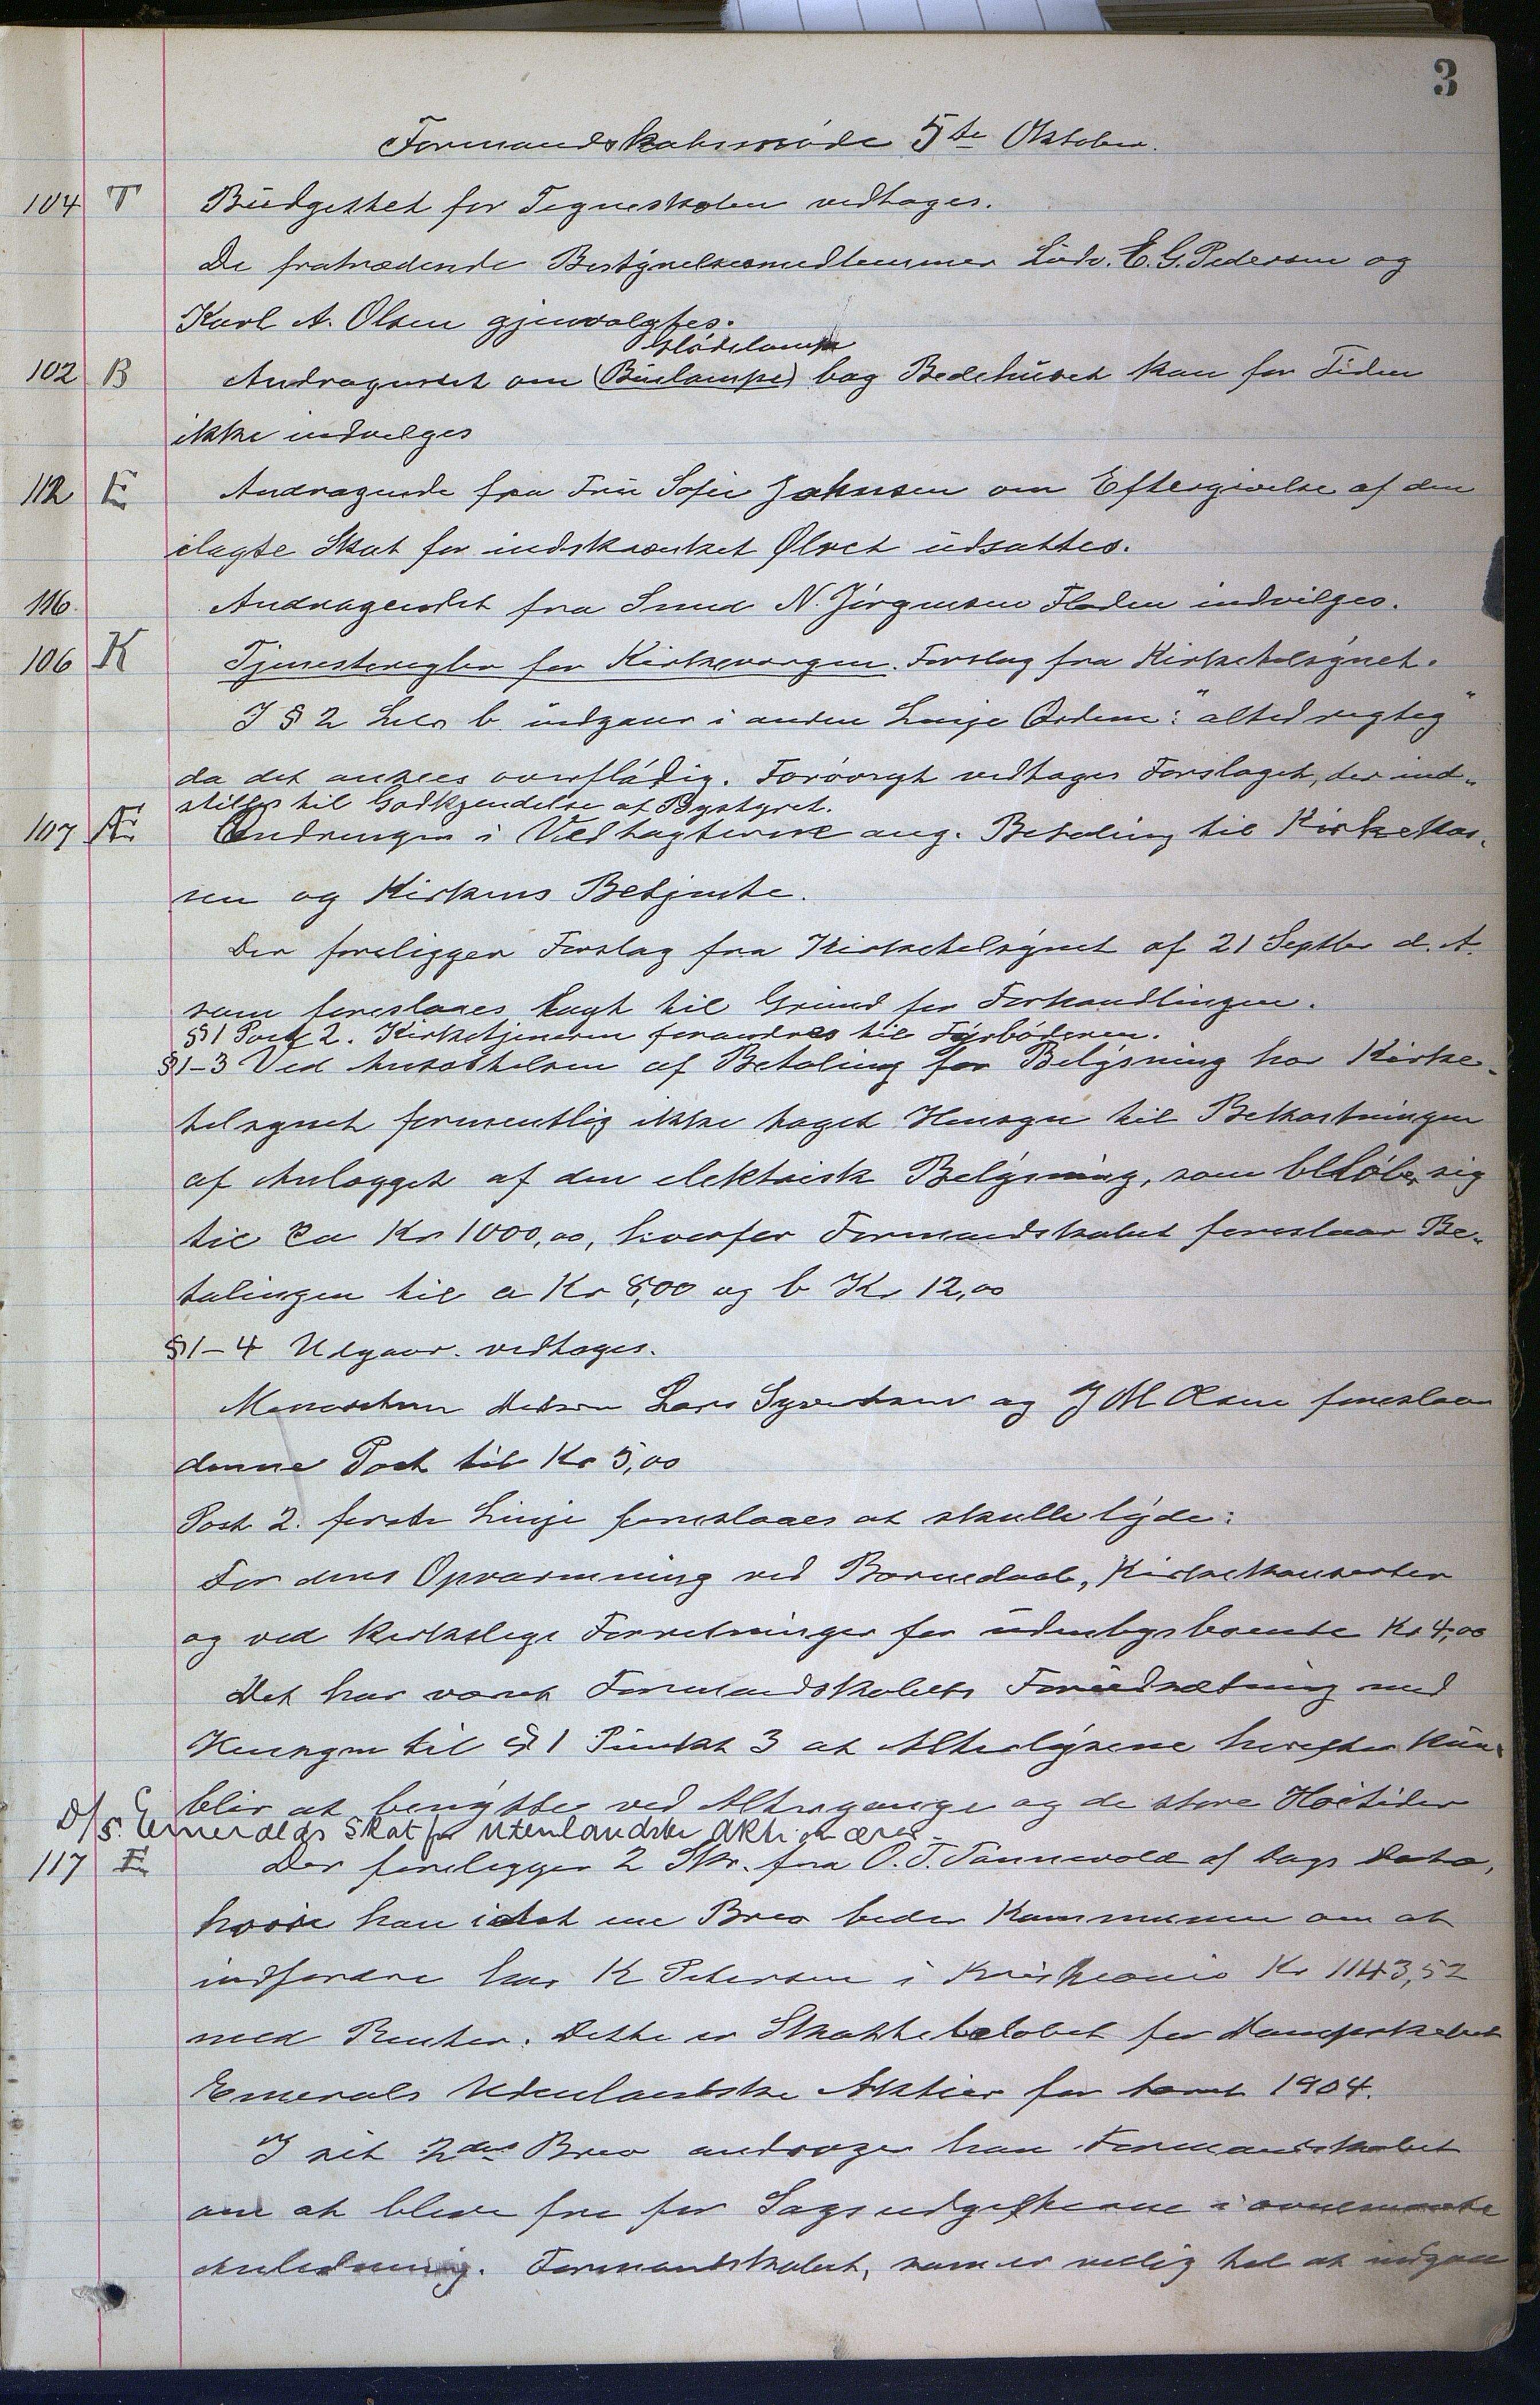 3
Formandskabsmøde 5te Oktober.
104 T Budgettet for Tegneskolen vedtages.
De fratrædende Bestyrelsesmedlemmer Ludv. E. G. Pedersen og
Karl A. Olsen gjenvalgtes.
Glødelampe
102 B Andragendet om (Buelampe) bag Bedehuset kan for Tiden
ikke indvilges
112 E Andragende fra Frü Sofie Johnsen om Eftergivelse af den
ilagte Skat for indskrænket Ølret udsattes.
116. Andragendet fra Smed N. Jørgensen Floden indvilges.
106 K Tjenesteregler for Kirkevergen. Forslag fra Kirketilsynet.
I § 2 Litr b. udgaar i anden Linje Ordene: "altid rigtig"
da det ansees overflødig. Forøvrigt vedtages Forslaget, der ind-
stilles til Godkjendelse af Bystyret.
107 Æ Ændringer i Vedtægterne ang. Betaling til Kirkekas-
sen og Kirkens Betjente.
Der foreligger Forslag fra Kirketilsynet af 21 Septbr d. A.
som foreslaaes lagt til Grund for Forhandlingen.
§ 1 Post 2. Kirketjeneren forandres til Fyrbøderen.
§ 1-3 Ved Ansættelsen af Betaling for Belysning har Kirke-
tilsynet formentlig ikke taget Hensyn til Bekostningen
af Anlægget af den elektrisk Belysning, som beløber sig
til Ca Kr 1000,00, hvorfor Formandskabet foreslaar Be-
talingen til a Kr 8,00 og b Kr 12,00
§ 1-4 Udgaar. vedtages.
Lars Syvertsen og J M Olsen foreslaar
denne Post til Kr 5,00
Post 2. første Linje foreslaaes at skulle lyde:
For dens Opvarmning ved Barnedaab, Kirkekonserter
og ved kirkelige Forretninger for udenbysboende Kr 4,00
Det har været Formandskabets Forudsætning med
Hensyn til § 1 Punkt 3 at Alterlysene herefter kun
blir at benytte ved Altergange og de store Høitider
D/S. Emeralds Skat for utenlandske Aktionærer
117 E Der foreligger 2 Skr. fra O. T. Tannevold af Dags Dato,
hvori han i det ene Brev beder Kommunen om at
indfordre hos K Petersen i Kristiania Kr 1143,52
med Renter. Dette er Skattebeløbet for Dampskibet
Emeralds Udenlandske Aktier for Aaret 1904.
I sit 2det Brev andrager han Formandskabet
om at bleve fri for Sagsudgifterne i ovennævnte
Anledning. Formandskabet, som er villig til at indgaa